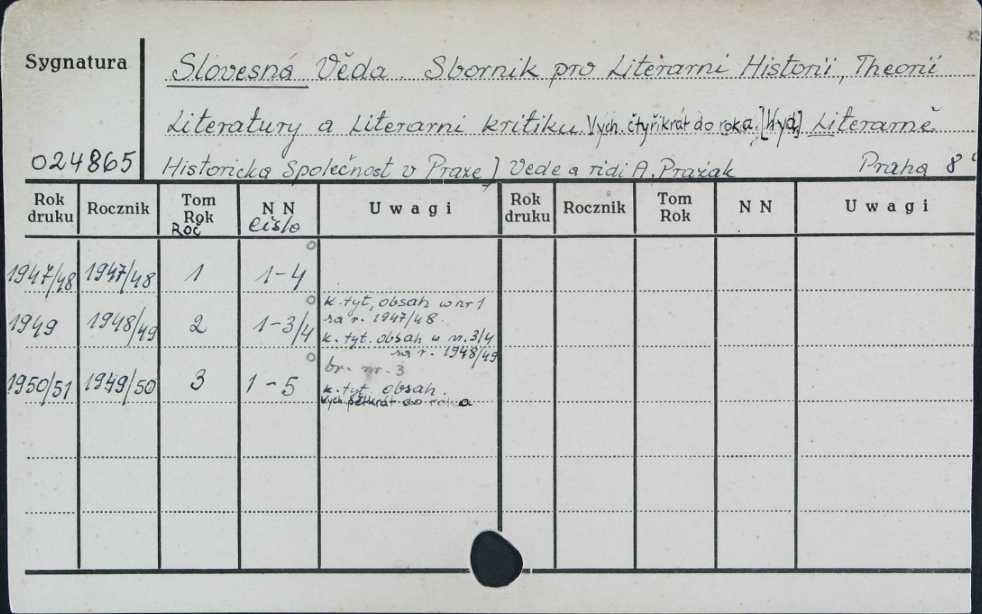 Sygnatura
Slovesná Věda. Sbornik pro Literarni Historii, Theorii
Literatury a Literarni kritiku. Vych. čtyřikrát do roka. [Wyd.] Literarně
024865 Historicka Společnost v Praze] Vede a ridi A. Pražak Praha 8°
Rok druku Rocznik Tom Rok Roč NN čislo Uwagi Rok druku Rocznik Tom Rok NN Uwagi
1947/48 1947/48 1 1-4
k. tyt, obsah w nr 1
za r. 1947/48.
1949 1948/49 2 1-3/4
k. tyt. obsah w nr. 3/4
za r. 1948/49
br. nr. 3
1950/51 1949/50 3 1-5
k. tyt. obsah.
Vych. pětkrát do roka